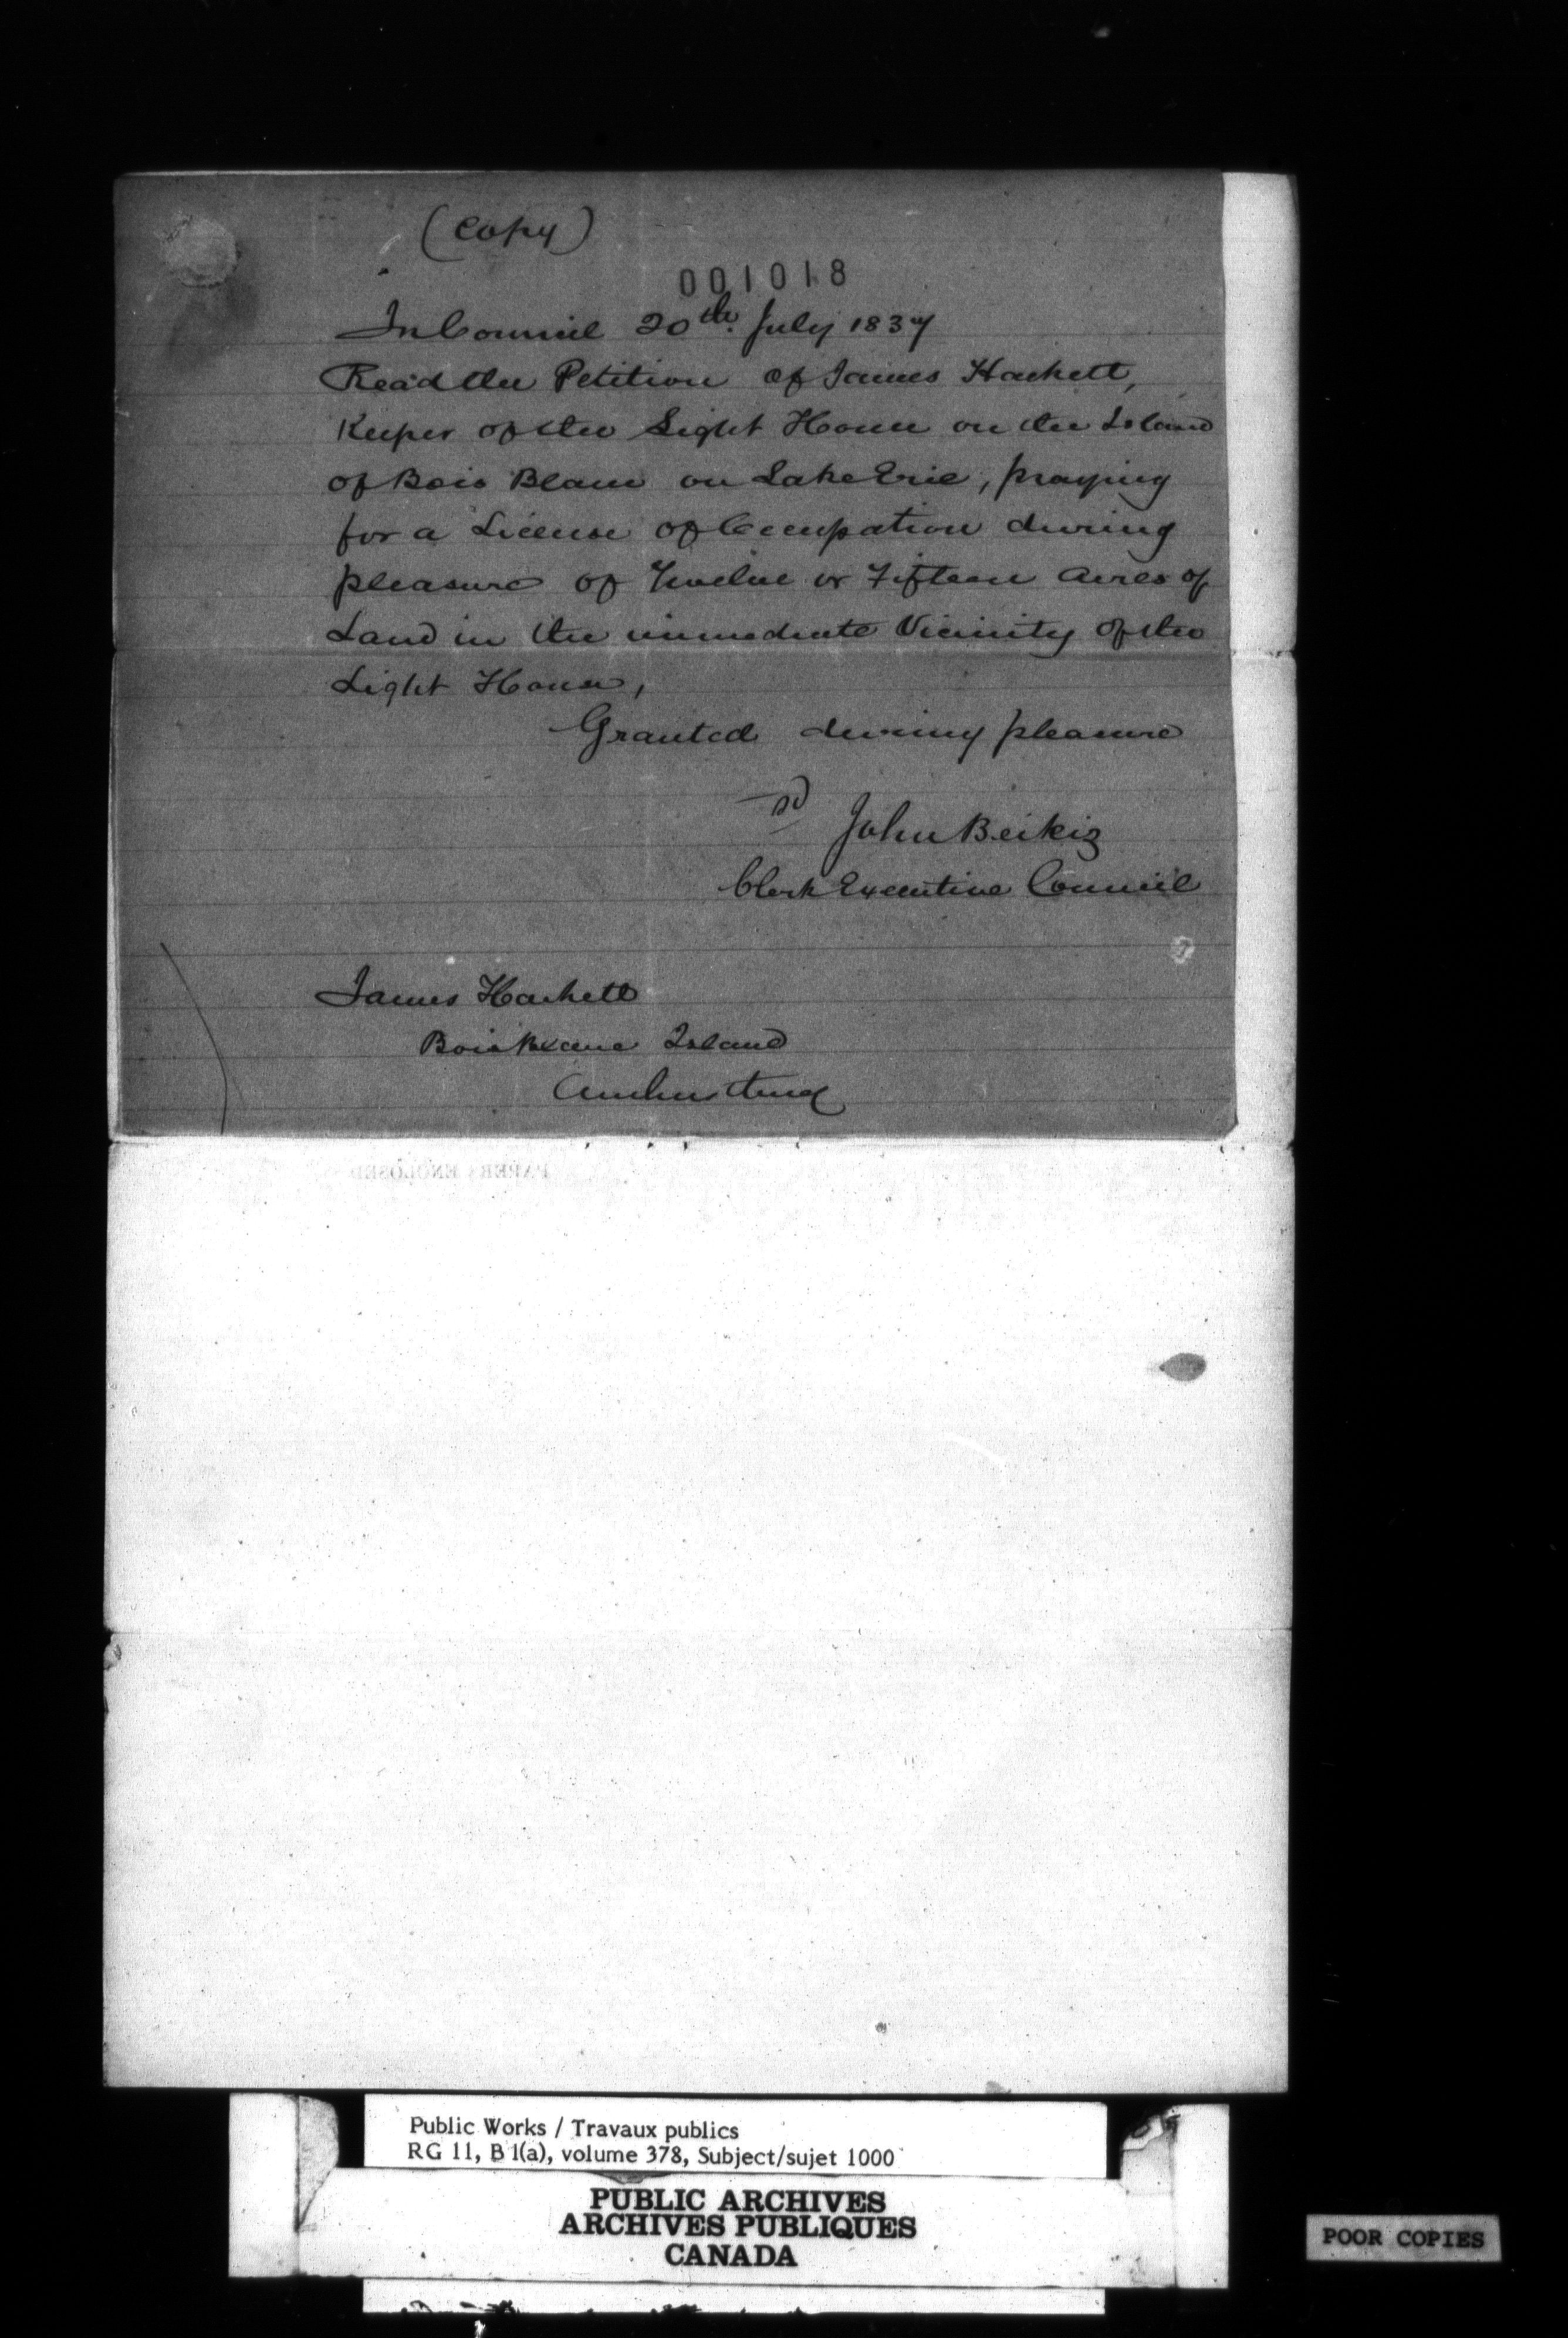 (Copy)
001018
In Council 20th. July 1837
Read the Petition of James Hackett,
Keeper of the Light House on the Island
of Bois Blanc on Lake Erie, praying
for a License of Occupation during
pleasure of Twelve or Fifteen Acres of
Land in the immediate Vicinity of the
Light House,
Granted during pleasure
sd John Beikie
Clerk Executive Council
James Hackett
Bois Blanc Island
Amherstburg
PAPERS ENCLOSED
Public Works / Travaux publics
RG 11, B 1(a), volume 378, Subject/sujet 1000
PUBLIC ARCHIVES
ARCHIVES PUBLIQUES
CANADA
POOR COPIES